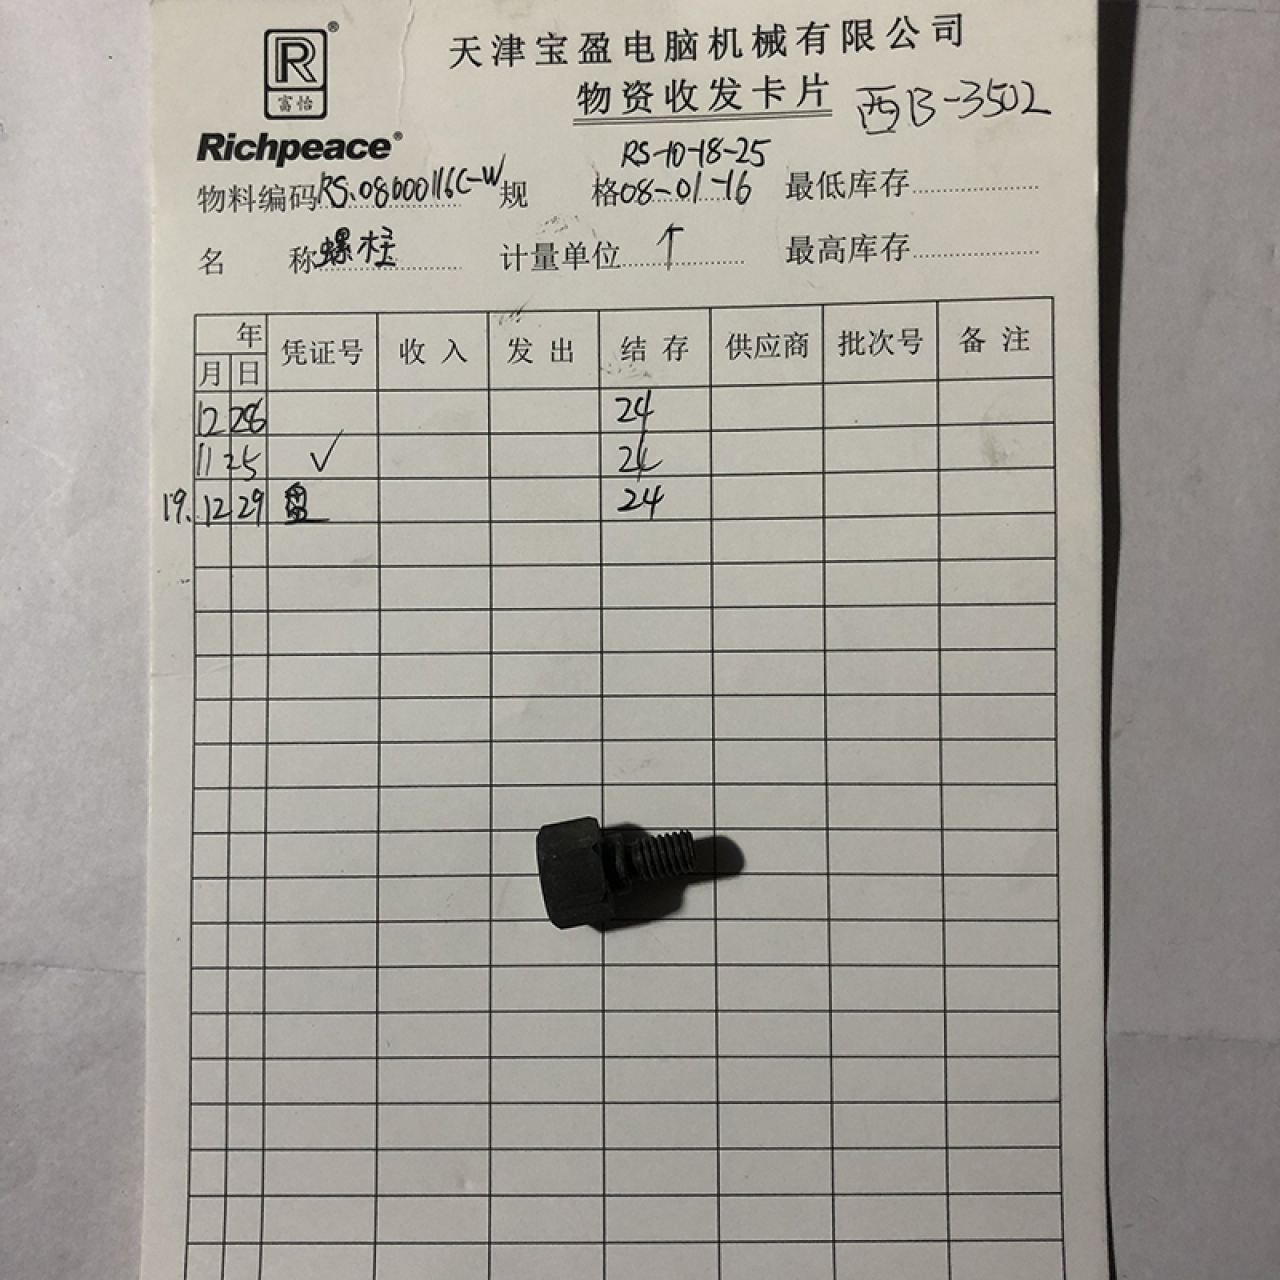 天津宝盈电脑机械有限公司
R®
富怡
物资收发卡片 西B-3502
Richpeace®
RS-10-18-25
物料编码RS.08600116C-W 规 格08-01-16 最低库存
名 称螺柱 计量单位个 最高库存
年 凭证号 收入 发出 结存 供应商 批次号 备注
月 日
12 28 24
11 25 ✓ 24
19. 12 29 盘 24